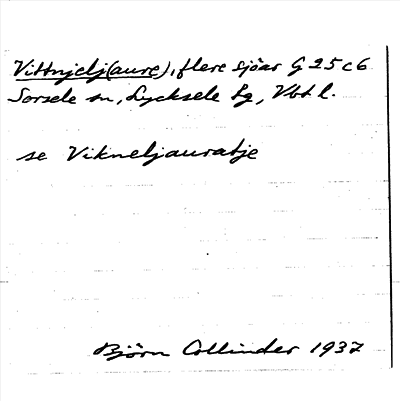 Vittnjelj(aure), flere sjöar G 25 c 6
Sorsele sn, Lycksele lg, Vbt l.
se Vikneljauratje
Björn Collinder 1937